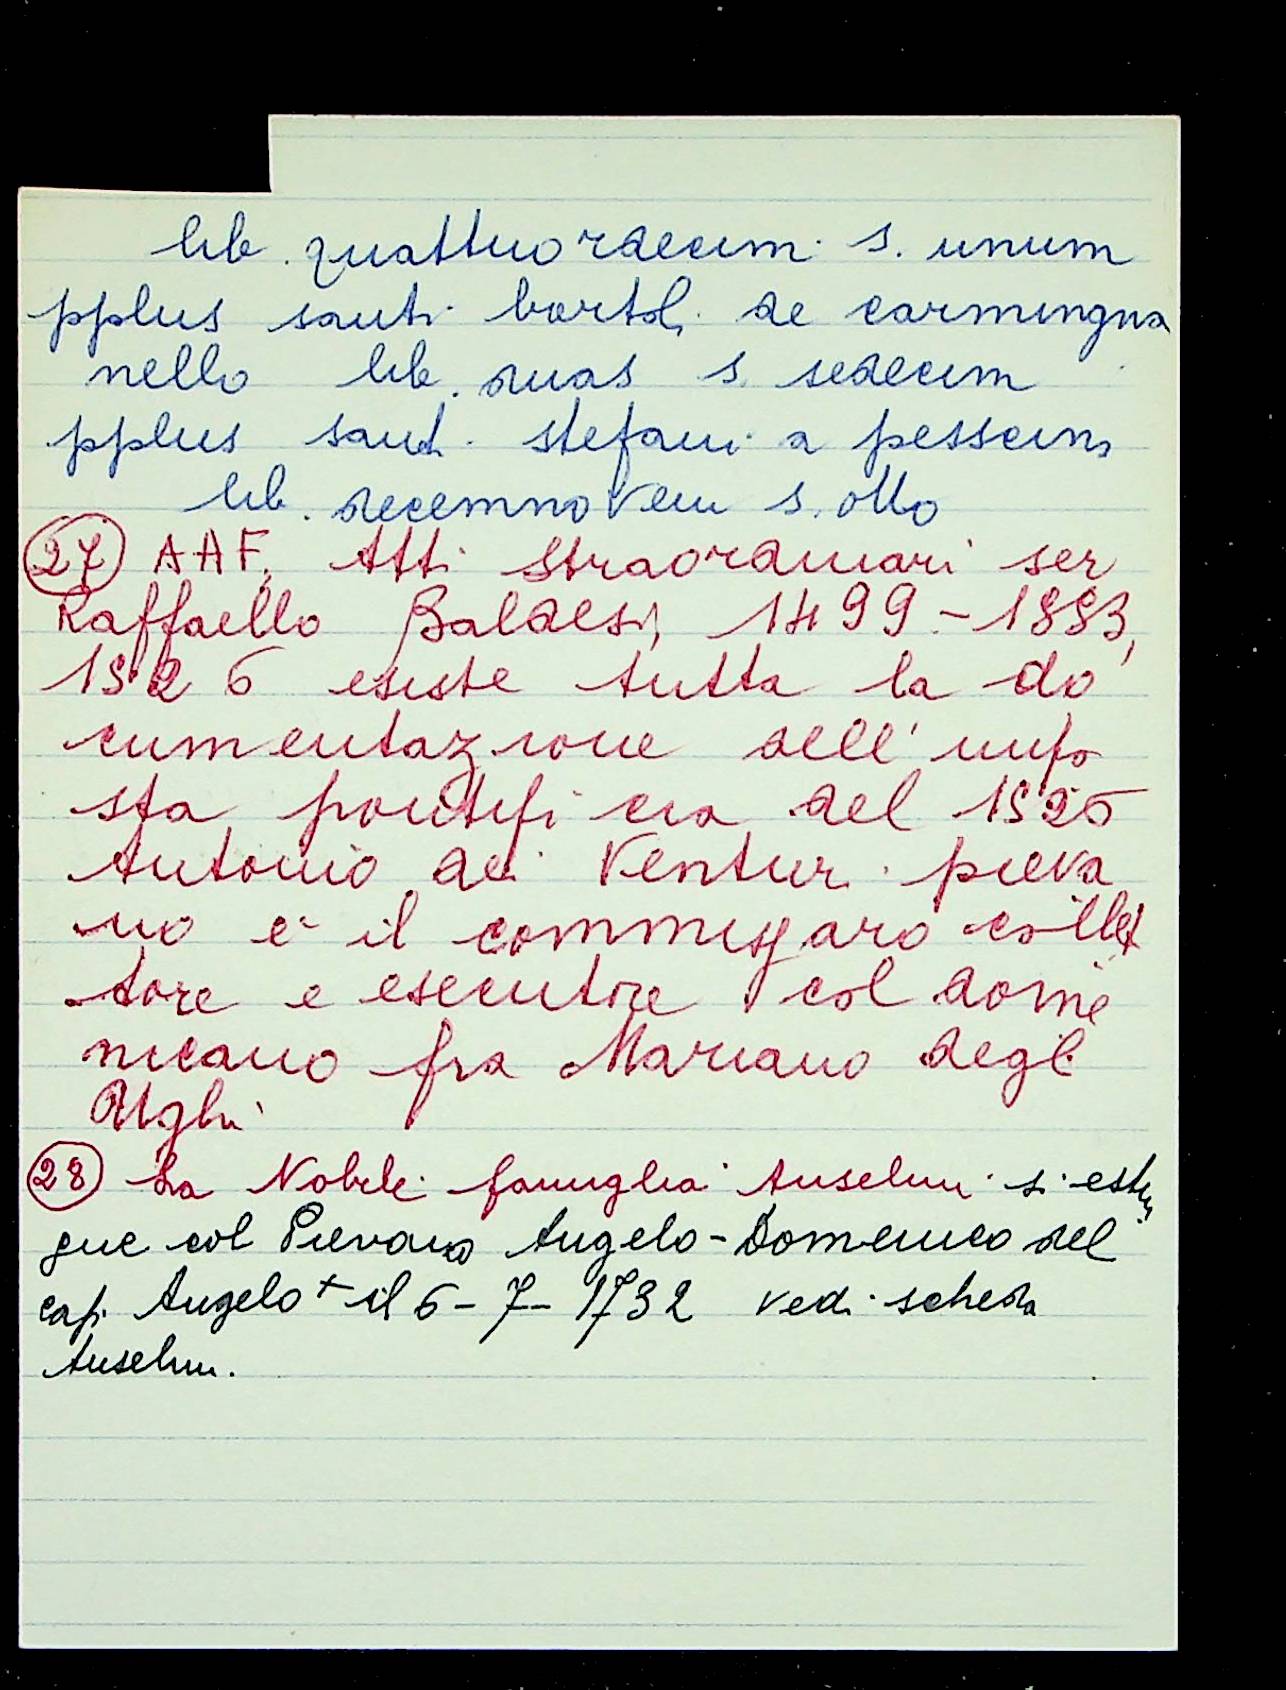 lib. quattuordecim s. unum
pplus santi bartol. de carmingna
nello lib. duas s. sedecim
pplus sant. stefani a pesscina
lib. decemnovem s. otto
27 AAF. Atti straordinari ser
Raffaello Baldesi, 1499-1883,
1526 esiste tutta la do
cumentazione dell'impo
sta pontificia del 1526
Antonio dei Ventur. pieva
no è il commissaro collet
tore e esecutore col dome
nicano fra Mariano degli
Ughi
28 La Nobile famiglia Anselmi si estin
gue col Pievano Angelo-Domenico del
cap. Angelo + il 6-7-1732 vedi scheda
Anselmi.